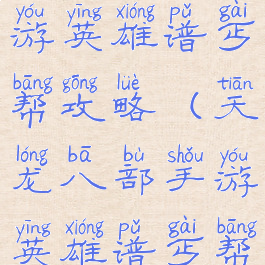 yóu yīng xióng pǔ gài
游英雄谱丐
bāng gōng lüè tiān
帮攻略（天
lóng bā bù shǒu yóu
龙八部手游
yīng xióng pǔ gài bāng
英雄谱丐帮